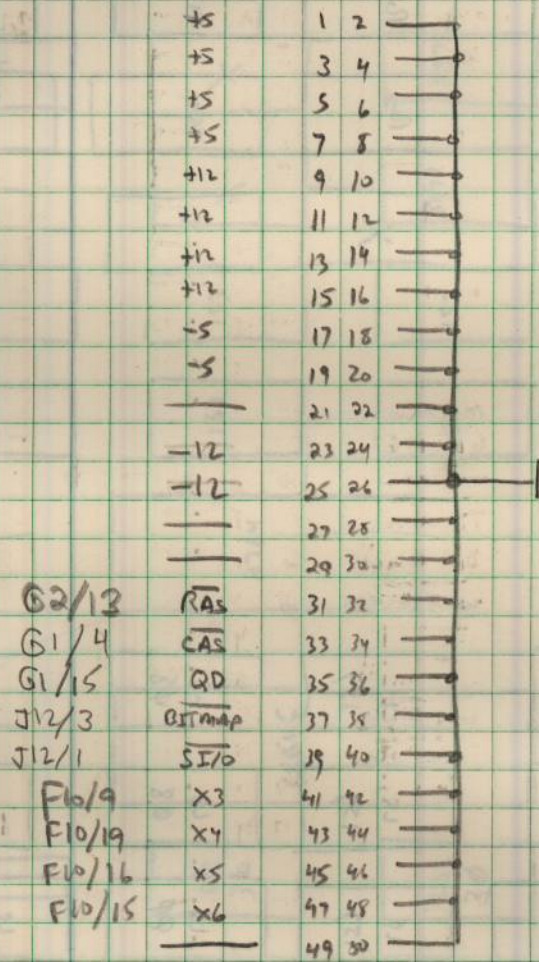 +5 1 2
+5 3 4
+5 5 6
+5 7 8
+12 9 10
+12 11 12
+12 13 14
+12 15 16
-5 17 18
-5 19 20
— 21 22
-12 23 24
-12 25 26
— 27 28
— 29 30
G2/13 R̅A̅S̅ 31 32
G1/4 C̅A̅S̅ 33 34
G1/15 QD 35 36
J12/3 B̅I̅T̅M̅A̅P̅ 37 38
J12/1 S̅I̅/̅O̅ 39 40
F10/9 X3 41 42
F10/19 X4 43 44
F10/16 X5 45 46
F10/15 X6 47 48
— 49 50